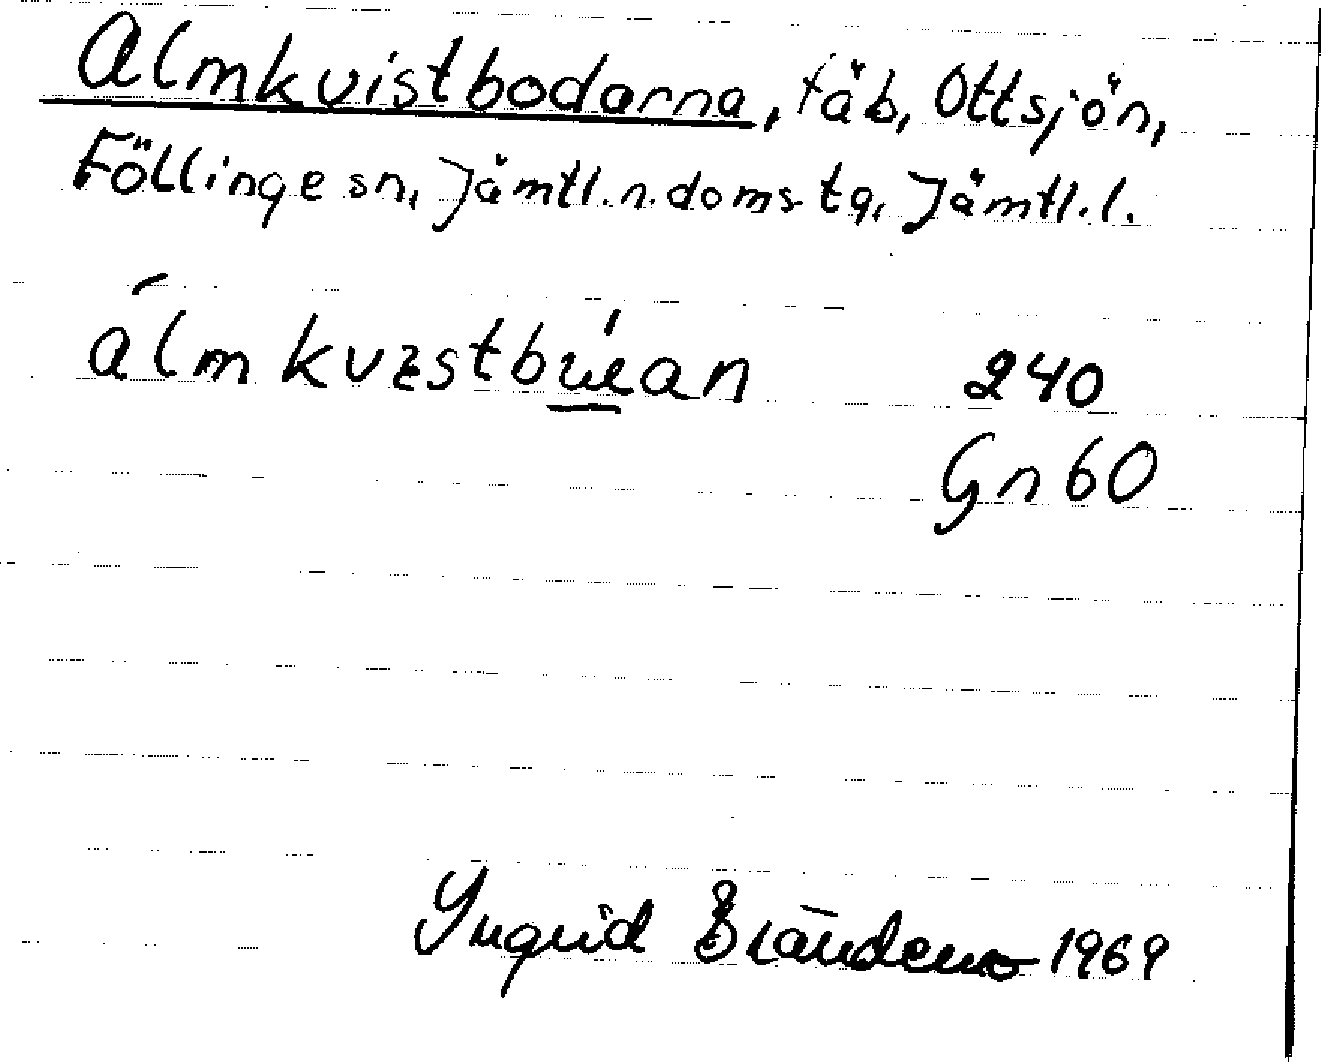 Almkvistbodarna, fäb, Ottsjön,
Föllinge sn, Jämtl.n.doms tg, Jämtl.l.
240
Gn 60
Ingrid Brändemo 1969